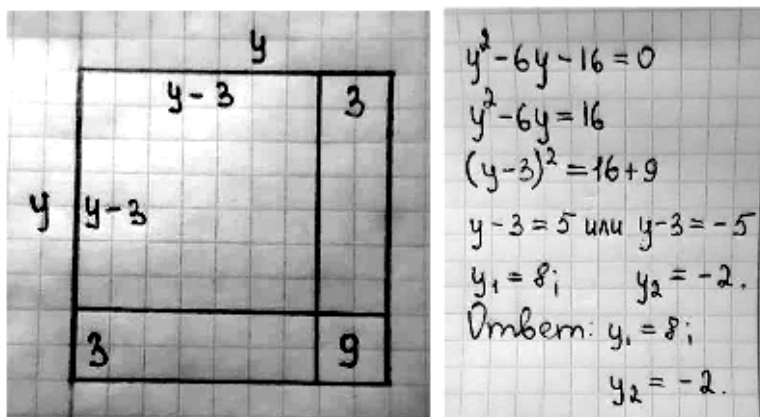 y
y-3 3
y y-3
3 9
y²-6y-16=0
y²-6y=16
(y-3)²=16+9
y-3=5 или y-3=-5
y₁=8; y₂=-2.
Ответ: y₁=8;
y₂=-2.